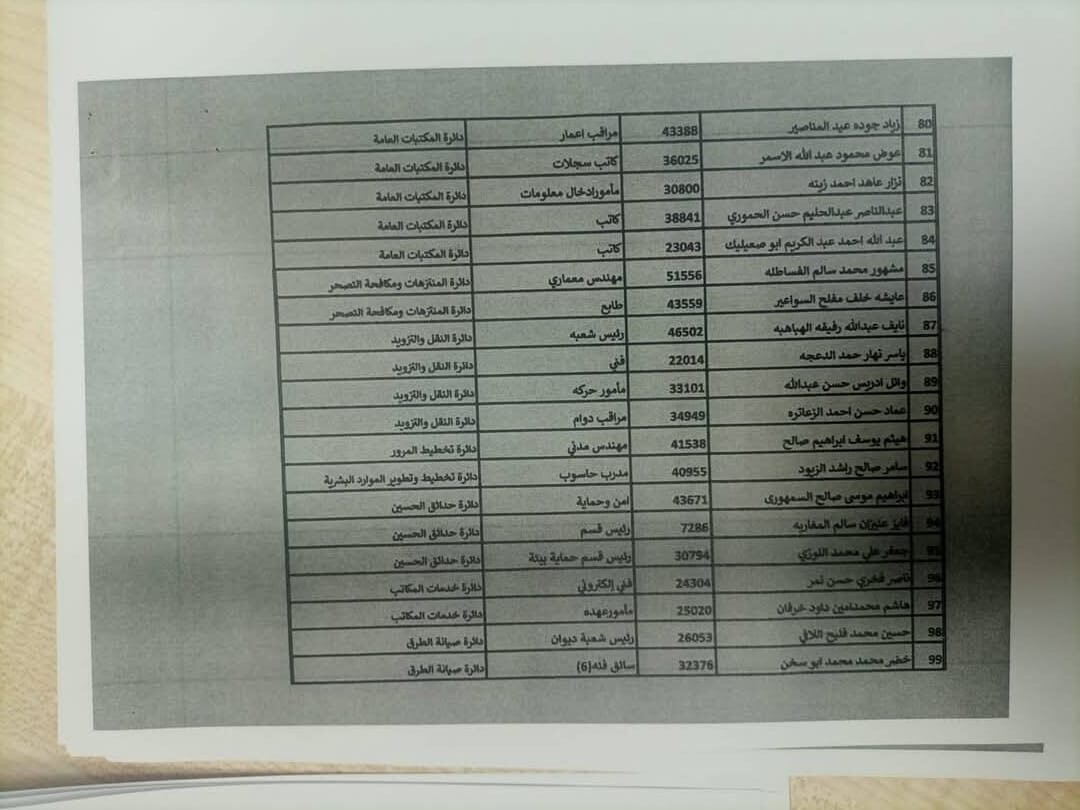 80 زياد جوده عيد المناصير 43388 مراقب اعمار دائرة المكتبات العامة
81 عوض محمود عبد الله الاسمر 36025 كاتب سجلات دائرة المكتبات العامة
82 نزار عاهد احمد زينه 30800 مأمورادخال معلومات دائرة المكتبات العامة
83 عبدالناصر عبدالحليم حسن الحموري 38841 كاتب دائرة المكتبات العامة
84 عبد الله احمد عبد الكريم ابو صعيليك 23043 كاتب دائرة المكتبات العامة
85 مشهور محمد سالم الفساطله 51556 مهندس معماري دائرة المنتزهات ومكافحة التصحر
86 عايشه خلف مفلح السواعير 43559 طابع دائرة المنتزهات ومكافحة التصحر
87 نايف عبدالله رفيفه الهباهبه 46502 رئيس شعبه دائرة النقل والتزويد
88 ياسر نهار حمد الدعجه 22014 فني دائرة النقل والتزويد
89 وائل ادريس حسن عبدالله 33101 مأمور حركه دائرة النقل والتزويد
90 عماد حسن احمد الزعاتره 34949 مراقب دوام دائرة النقل والتزويد
91 هيثم يوسف ابراهيم صالح 41538 مهندس مدني دائرة تخطيط المرور
92 سامر صالح راشد الزيود 40955 مدرب حاسوب دائرة تخطيط وتطوير الموارد البشرية
93 ابراهيم موسى صالح السمهورى 43671 امن وحماية دائرة حدائق الحسين
94 فايز عنيزان سالم المغاريه 7286 رئيس قسم دائرة حدائق الحسين
95 جعفر علي محمد اللوزي 30794 رئيس قسم حماية بيئة دائرة حدائق الحسين
96 ناصر فخري حسن نمر 24304 فني إلكتروني دائرة خدمات المكاتب
97 هاشم محمدامين داود خرفان 25020 مأمورعهده دائرة خدمات المكاتب
98 حسين محمد فليح اللافي 26053 رئيس شعبة ديوان دائرة صيانة الطرق
99 خضر محمد محمد ابو سخن 32376 سائق فئه(6) دائرة صيانة الطرق